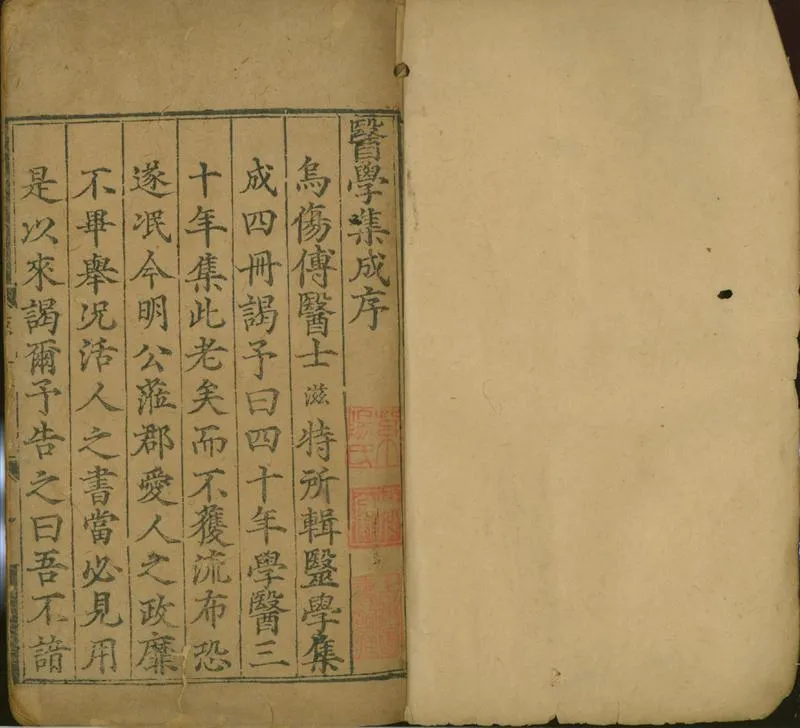 醫學集成序
烏傷傅醫士滋特所輯毉學集
成四冊謁予曰四十年學醫三
十年集此老矣而不獲流布恐
遂泯今明公蒞郡愛人之政靡
不畢舉况活人之書當必見用
是以來謁爾予告之曰吾不諳